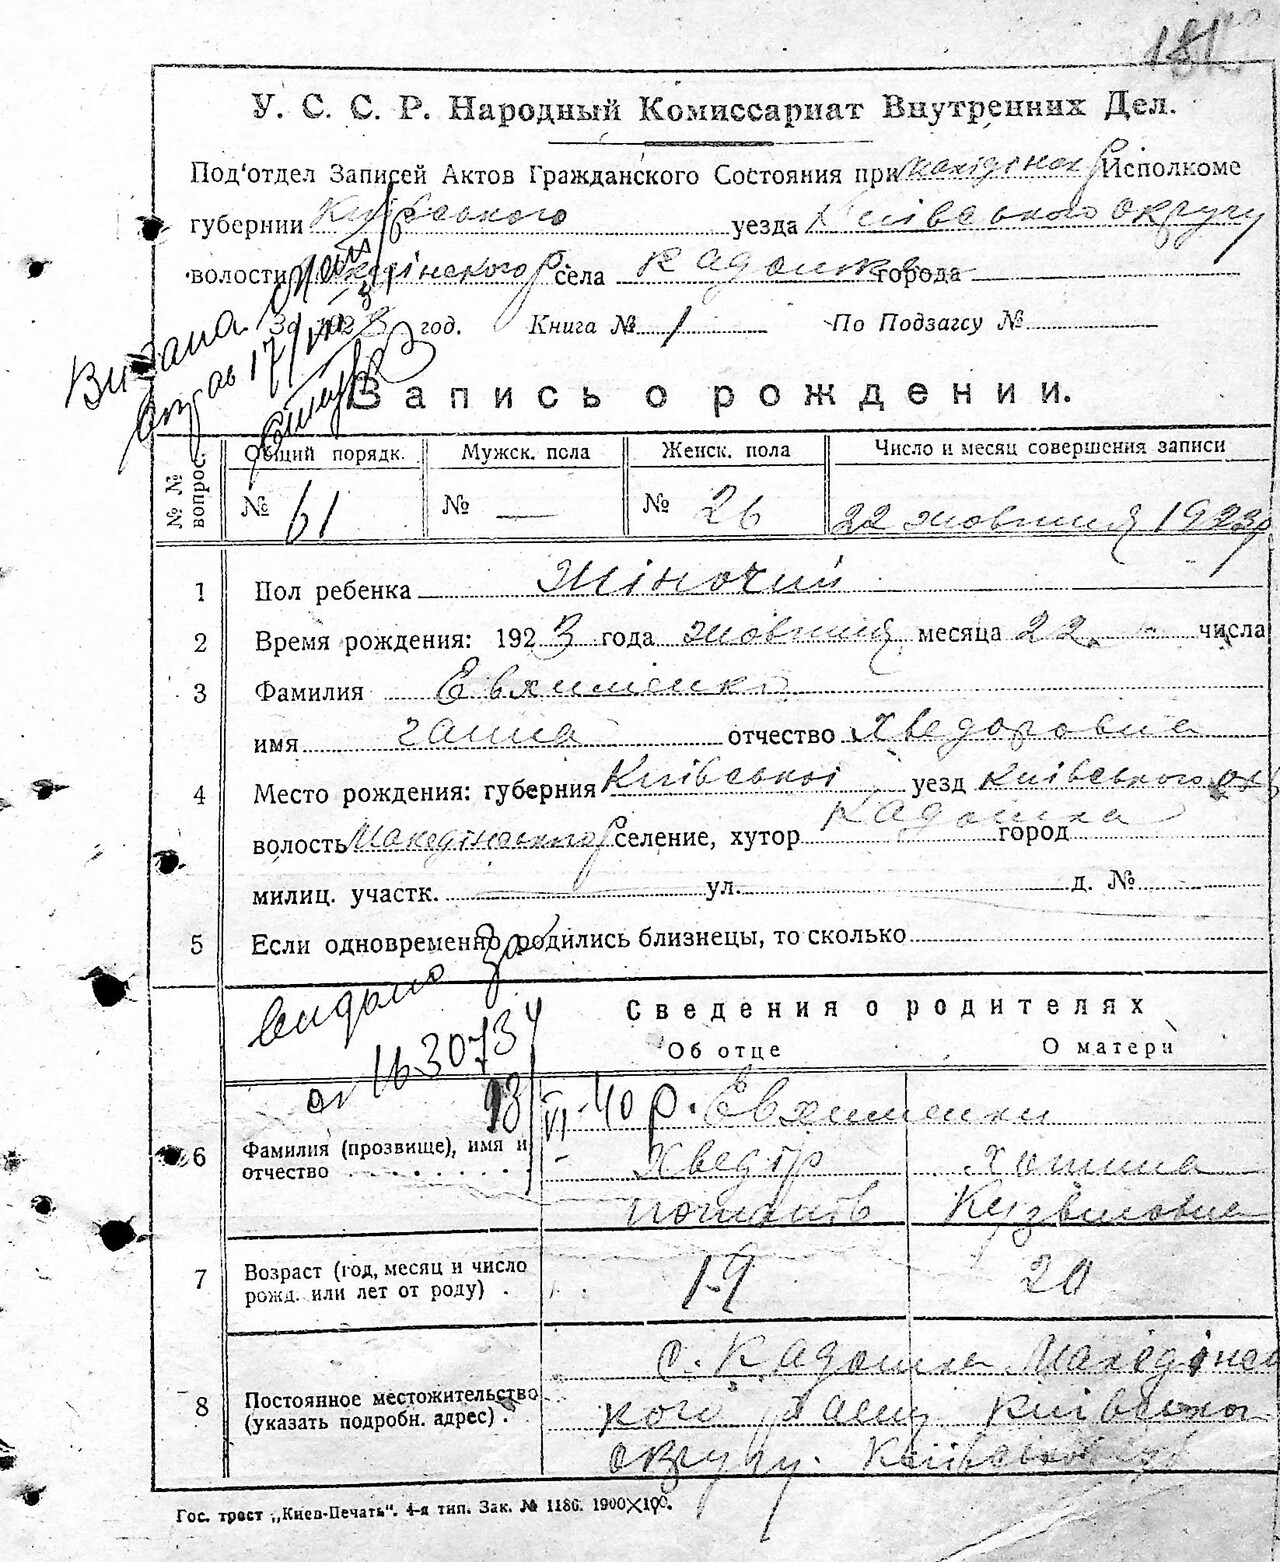 181
У. С. С. Р. Народный Комиссариат Внутренних Дел.
Под'отдел Записей Актов Гражданского Состояния при Исполкоме
губернии Київського уезда Київського округу
волости села Кадомка города
За 1923 год. Книга № 1 По Подзагсу №
Видана
17/VIII
Запись о рождении.
№ № вопрос. Общий порядк. Мужск. пола Женск. пола Число и месяц совершения записи
№ 61 № — № 26 22 жовтня 1923р
1 Пол ребенка Жіночий
2 Время рождения: 1923 года жовтня месяца 22 числа
3 Фамилия Евхименко
имя Ганна отчество Хведоровна
4 Место рождения: губерния Київської уезд Київського ок
волость Македонського р селение, хутор Кадомка город
милиц. участк. ул. д. №
5 Если одновременно родились близнецы, то сколько
видано за
163073
Сведения о родителях
Об отце О матери
13/VI-40 р. Евхименки
6 Фамилия (прозвище), имя и отчество
Хведір
7 Возраст (год, месяц и число рожд. или лет от роду) . 19 20
8 Постоянное местожительство (указать подробн. адрес) .
с. Кадомка Македонсь
кого Київського
округу.
Гос. трест „Киев-Печать“. 4-я тип. Зак. № 1186. 1900×100.